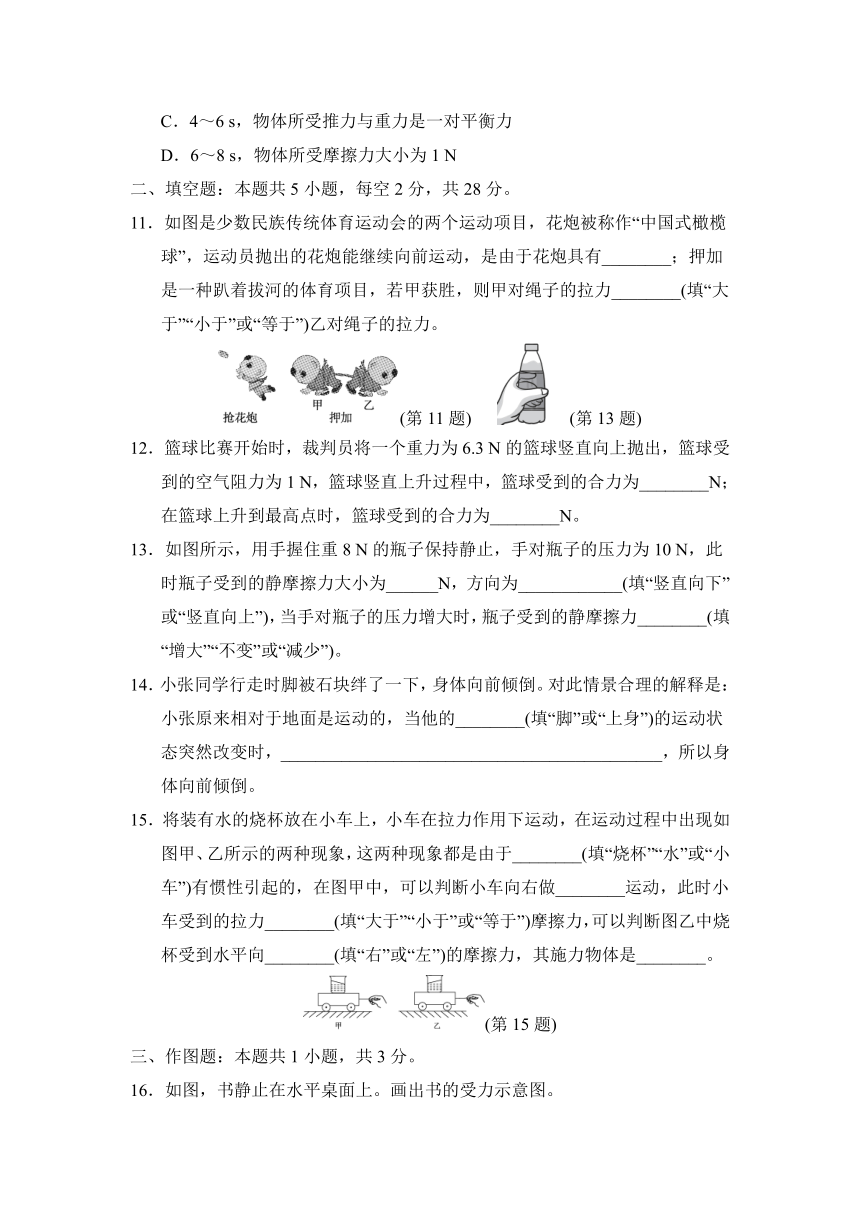 C．4～6 s，物体所受推力与重力是一对平衡力
D．6～8 s，物体所受摩擦力大小为 1 N
二、填空题：本题共 5 小题，每空 2 分，共 28 分。
11．如图是少数民族传统体育运动会的两个运动项目，花炮被称作“中国式橄榄
球”，运动员抛出的花炮能继续向前运动，是由于花炮具有________；押加
是一种趴着拔河的体育项目，若甲获胜，则甲对绳子的拉力________(填“大
于”“小于”或“等于”)乙对绳子的拉力。
抢花炮 甲 押加 乙 (第 11 题) (第 13 题)
12．篮球比赛开始时，裁判员将一个重力为 6.3 N 的篮球竖直向上抛出，篮球受
到的空气阻力为 1 N，篮球竖直上升过程中，篮球受到的合力为________N；
在篮球上升到最高点时，篮球受到的合力为________N。
13．如图所示，用手握住重 8 N 的瓶子保持静止，手对瓶子的压力为 10 N，此
时瓶子受到的静摩擦力大小为______N，方向为____________(填“竖直向下”
或“竖直向上”)，当手对瓶子的压力增大时，瓶子受到的静摩擦力________(填
“增大”“不变”或“减少”)。
14．小张同学行走时脚被石块绊了一下，身体向前倾倒。对此情景合理的解释是：
小张原来相对于地面是运动的，当他的________(填“脚”或“上身”)的运动状
态突然改变时，____________________________________________，所以身
体向前倾倒。
15．将装有水的烧杯放在小车上，小车在拉力作用下运动，在运动过程中出现如
图甲、乙所示的两种现象，这两种现象都是由于________(填“烧杯”“水”或“小
车”)有惯性引起的，在图甲中，可以判断小车向右做________运动，此时小
车受到的拉力________(填“大于”“小于”或“等于”)摩擦力，可以判断图乙中烧
杯受到水平向________(填“右”或“左”)的摩擦力，其施力物体是________。
甲 乙 (第 15 题)
三、作图题：本题共 1 小题，共 3 分。
16．如图，书静止在水平桌面上。画出书的受力示意图。